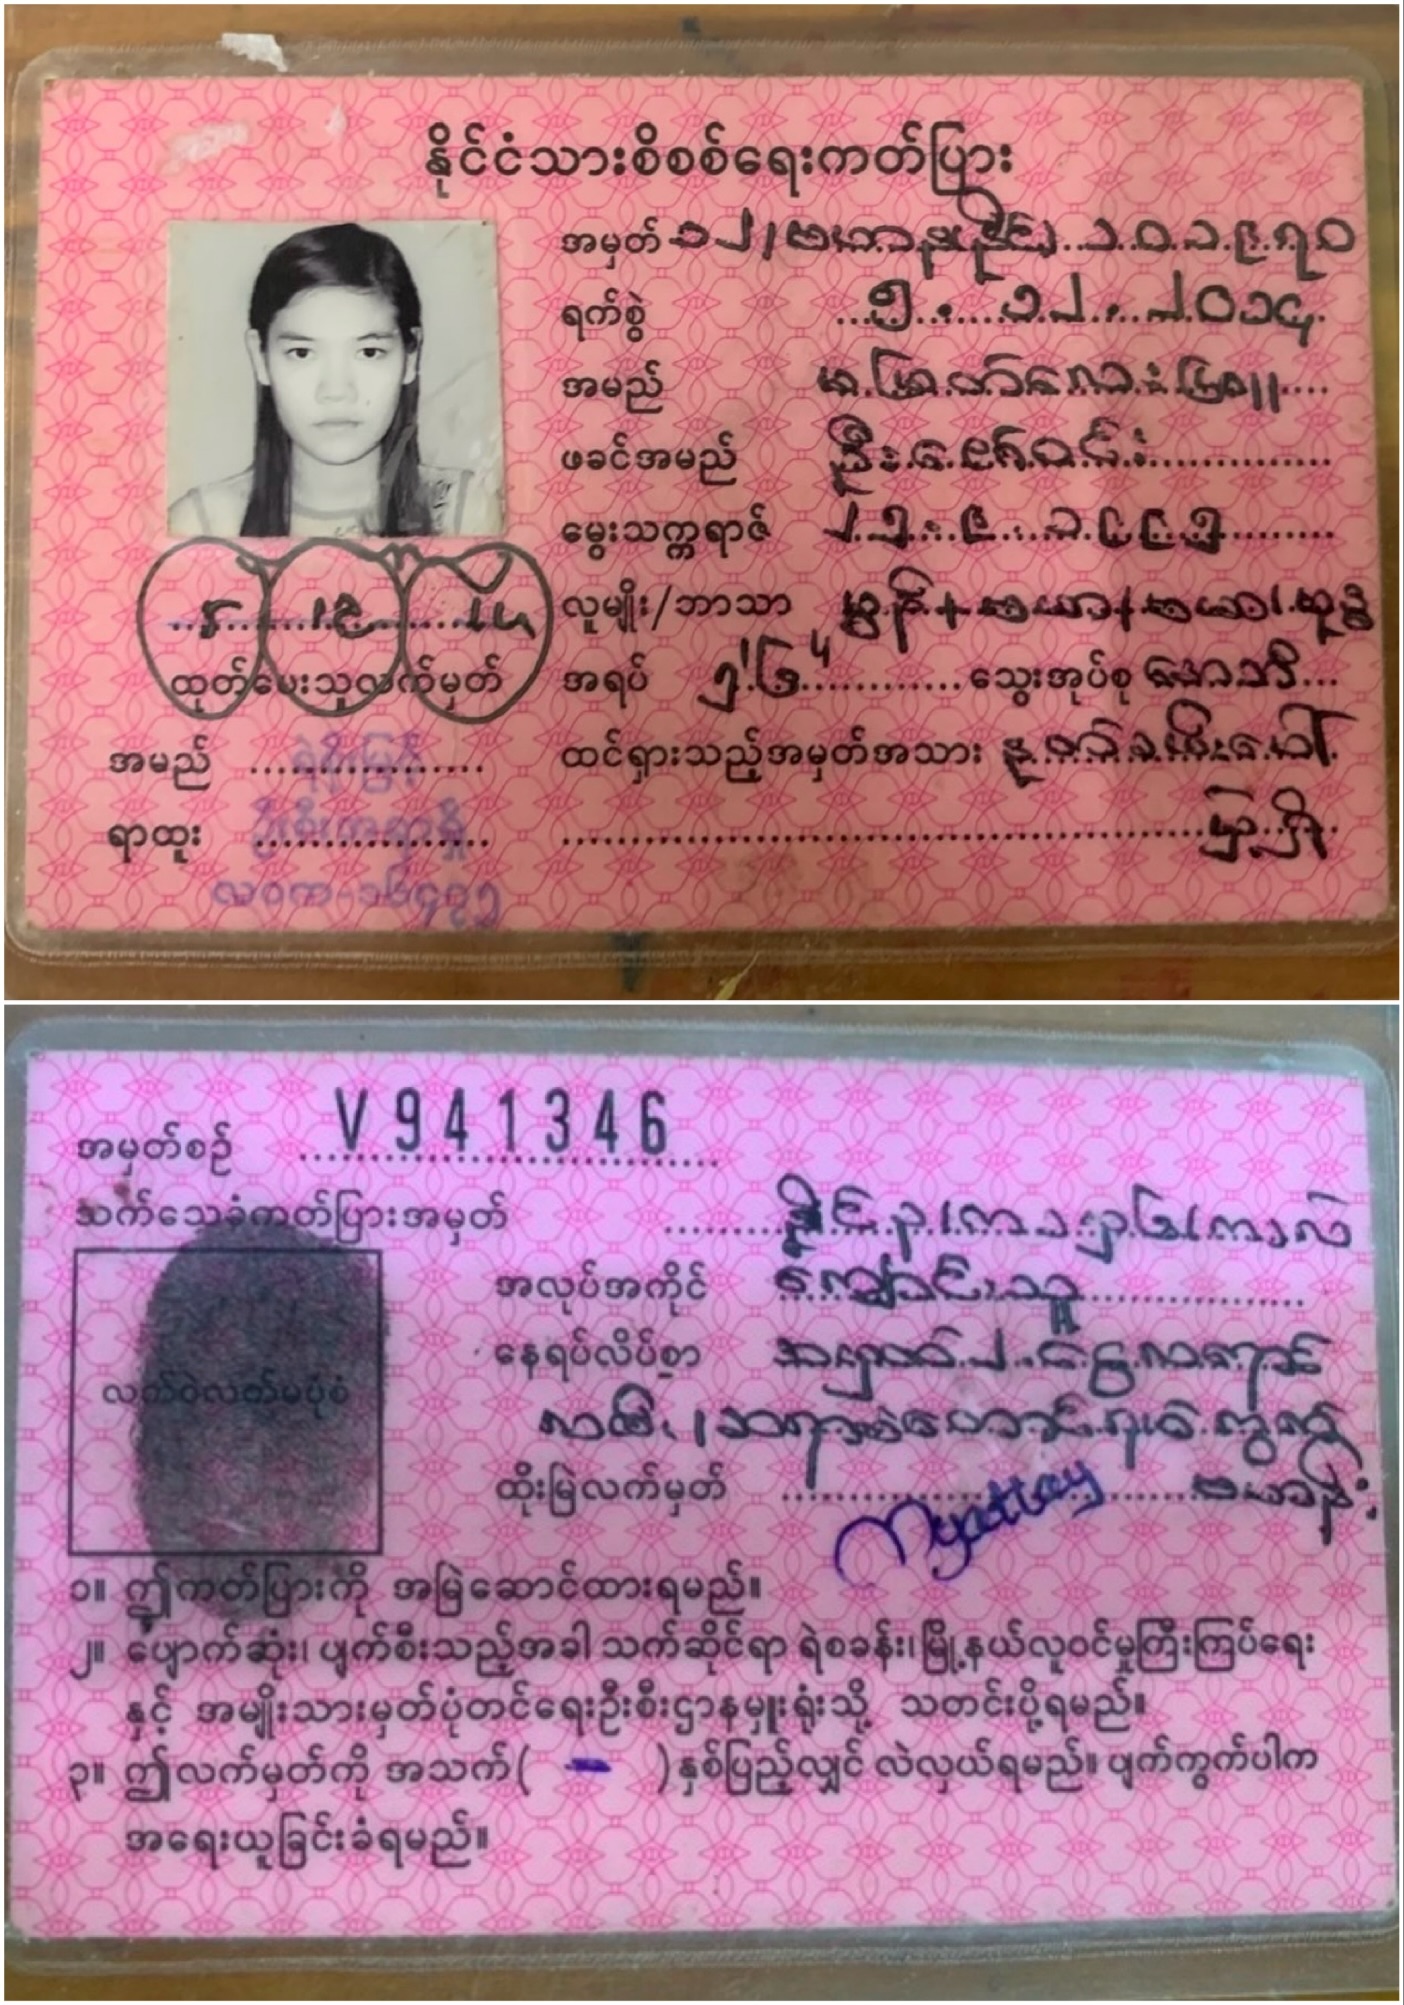 နိုင်ငံသားစိစစ်ရေးကတ်ပြား
အမှတ် ၁၂/ဗကန(နိုင်) ၁၀၁၉၇၀
ရက်စွဲ ၅.၁၂.၂၀၁၄
အမည် မမြတ်လေး
ဖခင်အမည် ဦးဇော်ဝင်း
မွေးသက္ကရာဇ် ၂၅.၉.၁၉၉၅
လူမျိုး/ဘာသာ မွန်+ဗမာ/ဗမာ၊ဗုဒ္ဓ
အရပ် ၅'၆" သွေးအုပ်စု
5 12 14
ထုတ်ပေးသူလက်မှတ်
ထင်ရှားသည့်အမှတ်အသား
အမည် ရဲစိုးမြင့်
ရာထူး ဦးစီးအရာရှိ
လဝက-၁၆၄၇၅
အမှတ်စဉ် V 941346
သက်သေခံကတ်ပြားအမှတ်
အလုပ်အကိုင် ကျောင်းသူ
နေရပ်လိပ်စာ အမှတ်
လက်ဝဲလက်မပုံစံ
ထိုးမြဲလက်မှတ် Myatlay
၁။ ဤကတ်ပြားကို အမြဲဆောင်ထားရမည်။
၂။ ပျောက်ဆုံး၊ ပျက်စီးသည့်အခါ သက်ဆိုင်ရာ ရဲစခန်း၊ မြို့နယ်လူဝင်မှုကြီးကြပ်ရေး
နှင့် အမျိုးသားမှတ်ပုံတင်ရေးဦးစီးဌာနမှူးရုံးသို့ သတင်းပို့ရမည်။
၃။ ဤလက်မှတ်ကို အသက်( - )နှစ်ပြည့်လျှင် လဲလှယ်ရမည်။ ပျက်ကွက်ပါက
အရေးယူခြင်းခံရမည်။